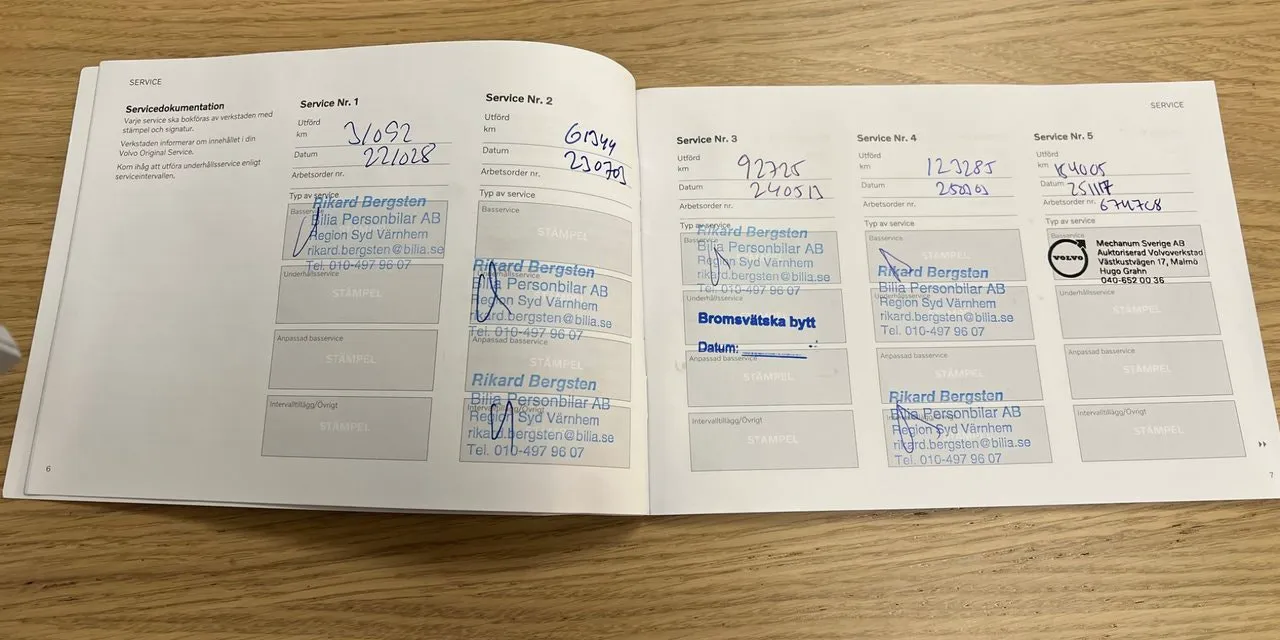 SERVICE
Servicedokumentation
Varje service ska bokföras av verkstaden med
stämpel och signatur.
Verkstaden informerar om innehållet i din
Volvo Original Service.
Kom ihåg att utföra underhållsservice enligt
serviceintervallen.
6
Service Nr. 1
Utförd
km 31092
Datum 221028
Arbetsorder nr.
Typ av service
Basservice
Rikard Bergsten
Bilia Personbilar AB
Region Syd Värnhem
rikard.bergsten@bilia.se
Tel. 010-497 96 07
Underhållsservice
STÄMPEL
Anpassad basservice
STÄMPEL
Intervalltillägg/Övrigt
STÄMPEL
Service Nr. 2
Utförd
km 61344
Datum 230703
Arbetsorder nr.
Typ av service
Basservice
STÄMPEL
Underhållsservice
Rikard Bergsten
Bilia Personbilar AB
Region Syd Värnhem
rikard.bergsten@bilia.se
Tel. 010-497 96 07
Anpassad basservice
STÄMPEL
Rikard Bergsten
Bilia Personbilar AB
Intervalltillägg/Övrigt
Region Syd Värnhem
rikard.bergsten@bilia.se
Tel. 010-497 96 07
SERVICE
Service Nr. 3
Utförd
km 92725
Datum 240513
Arbetsorder nr.
Typ av service
Rikard Bergsten
Basservice
Bilia Personbilar AB
Region Syd Värnhem
rikard.bergsten@bilia.se
Tel. 010-497 96 07
Underhållsservice
Bromsvätska bytt
Datum:
Anpassad basservice
STÄMPEL
Intervalltillägg/Övrigt
STÄMPEL
Service Nr. 4
Utförd
km 123285
Datum
Arbetsorder nr.
Typ av service
Basservice
STÄMPEL
Rikard Bergsten
Bilia Personbilar AB
Underhållsservice
Region Syd Värnhem
rikard.bergsten@bilia.se
Tel. 010-497 96 07
Anpassad basservice
STÄMPEL
Rikard Bergsten
Bilia Personbilar AB
Region Syd Värnhem
rikard.bergsten@bilia.se
Tel. 010-497 96 07
Service Nr. 5
Utförd
km 154005
Datum 251117
Arbetsorder nr.
Typ av service
Basservice
VOLVO
Mechanum Sverige AB
Auktoriserad Volvoverkstad
Västkustvägen 17, Malmö
Hugo Grahn
040-652 00 36
Underhållsservice
STÄMPEL
Anpassad basservice
STÄMPEL
Intervalltillägg/Övrigt
STÄMPEL
7